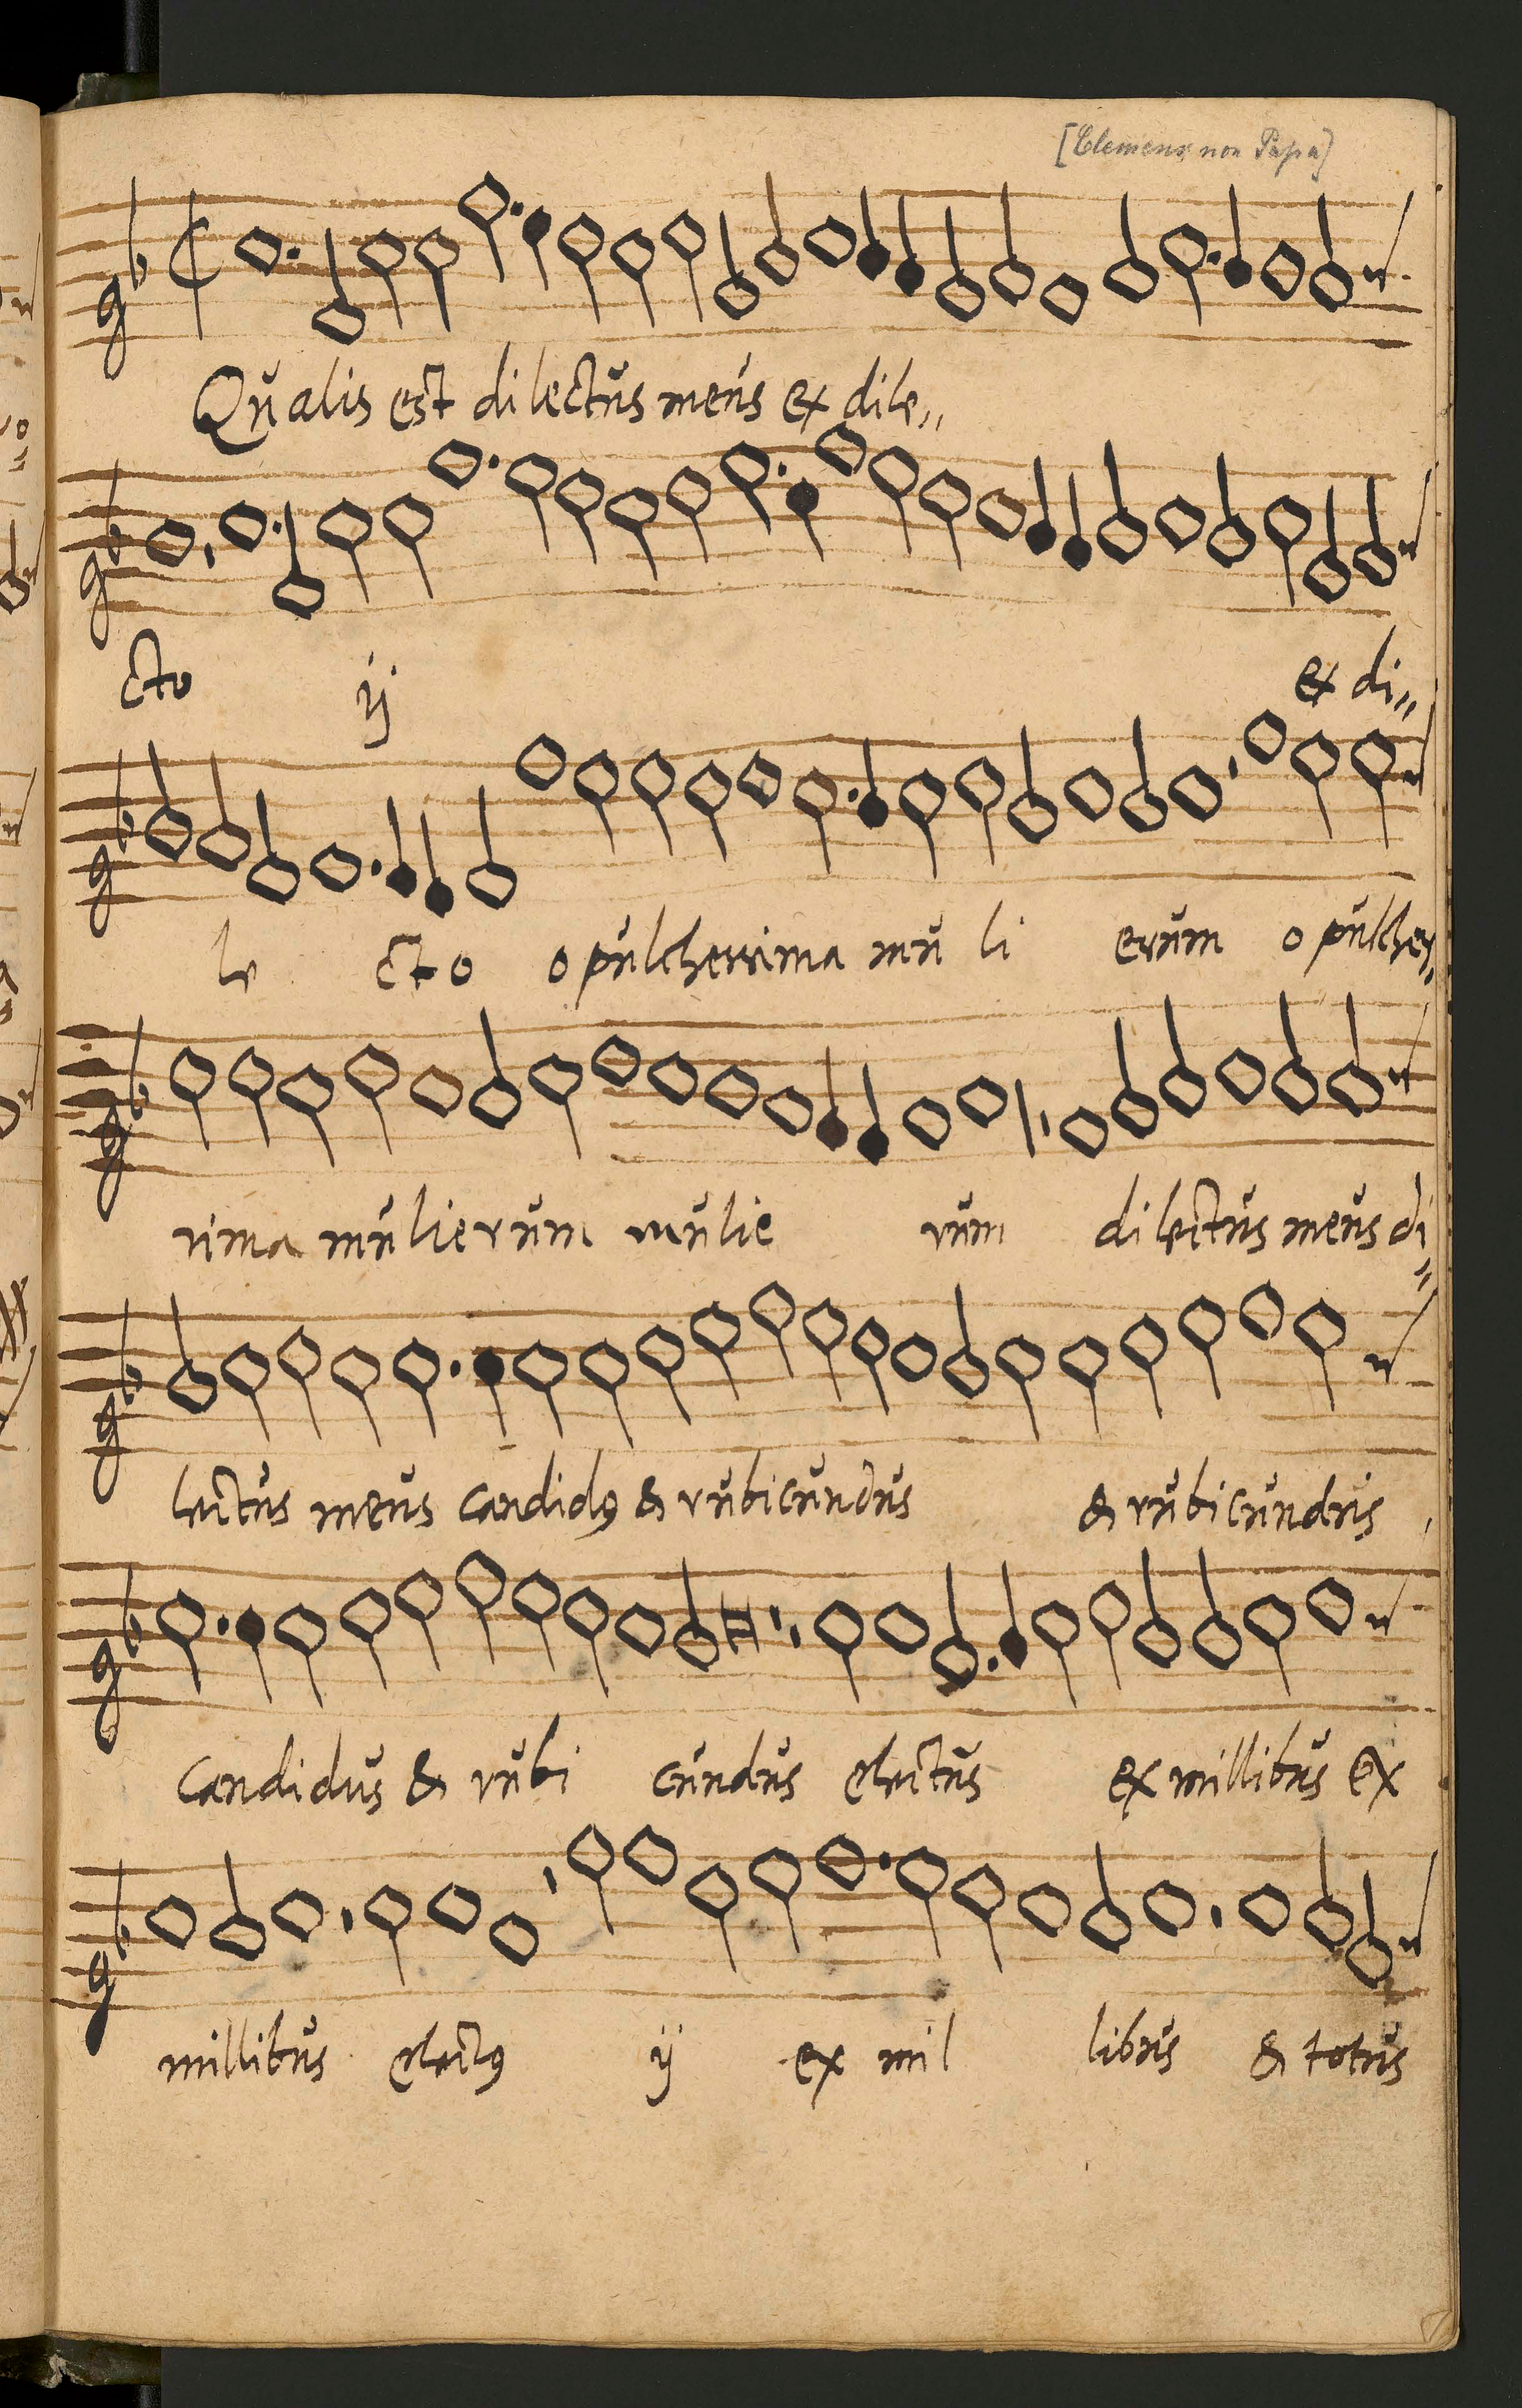 [Clemens non Papa]
Qualis est dilectus meus ex dile,,
cto ij ex di,,
le cto o pulcherrima mu li erum o pulcher,,
rima mulierum mulie rum dilectus meus di,,
lectus meus candidꝰ & rubicundus & rubicundus
candidus & rubi cundus electus ex millibus ex
millibus electꝰ ij ex mil libus & totus